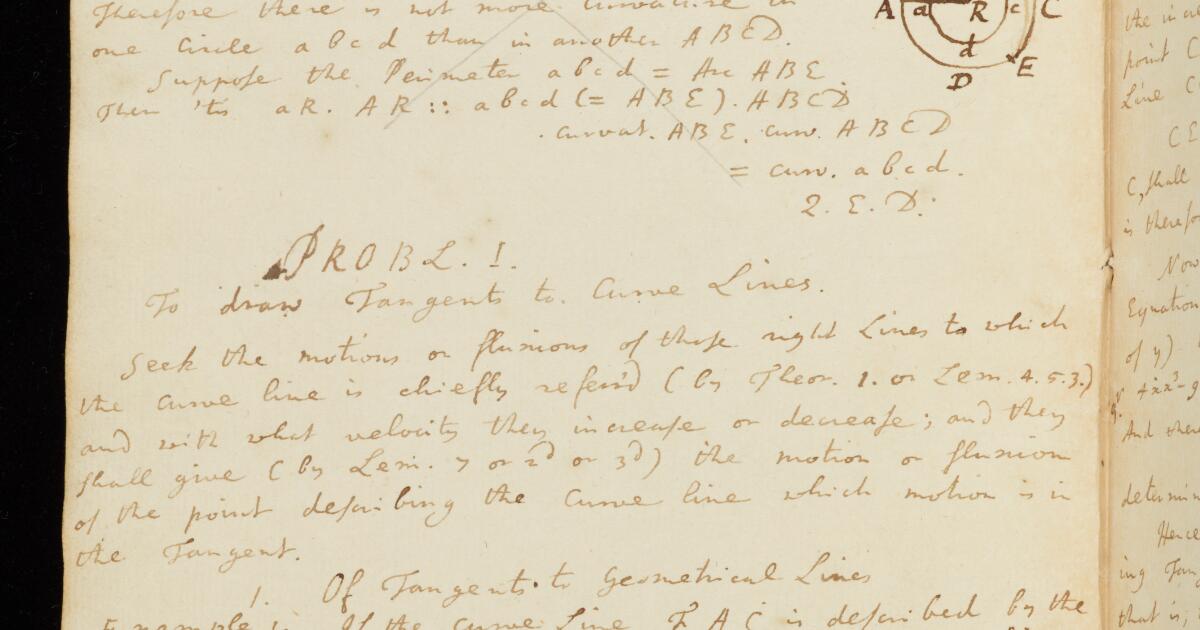 Therefore there is not more curvature in
one circle a b c d than in another A B C D.
Suppose the Perimeter a b c d = Arc A B E.
Then 'tis aR. AR :: a b c d (= A B E). A B C D
. curvat. A B E. curv. A B C D
= curv. a b c d.
Q. E. D.
A a R c C
d
D E
PROBL. I.
To draw Tangents to Curve Lines.
Seek the motions or fluxions of those right Lines to which
the curve line is chiefly refer'd (by Theor. 1. or Lem. 4. 5. 3.)
and with what velocity they increase or decrease; and they
shall give (by Lem. 7 or 2d or 3d) the motion or fluxion
of the point describing the Curve line which motion is in
the Tangent.
1. Of Tangents to Geometrical Lines
Example 1. If the curve Line F A C is described by the
the
point
Line C
C E
C, shall
is
Now
Equation
of y)
And
Hence
ing
that is,